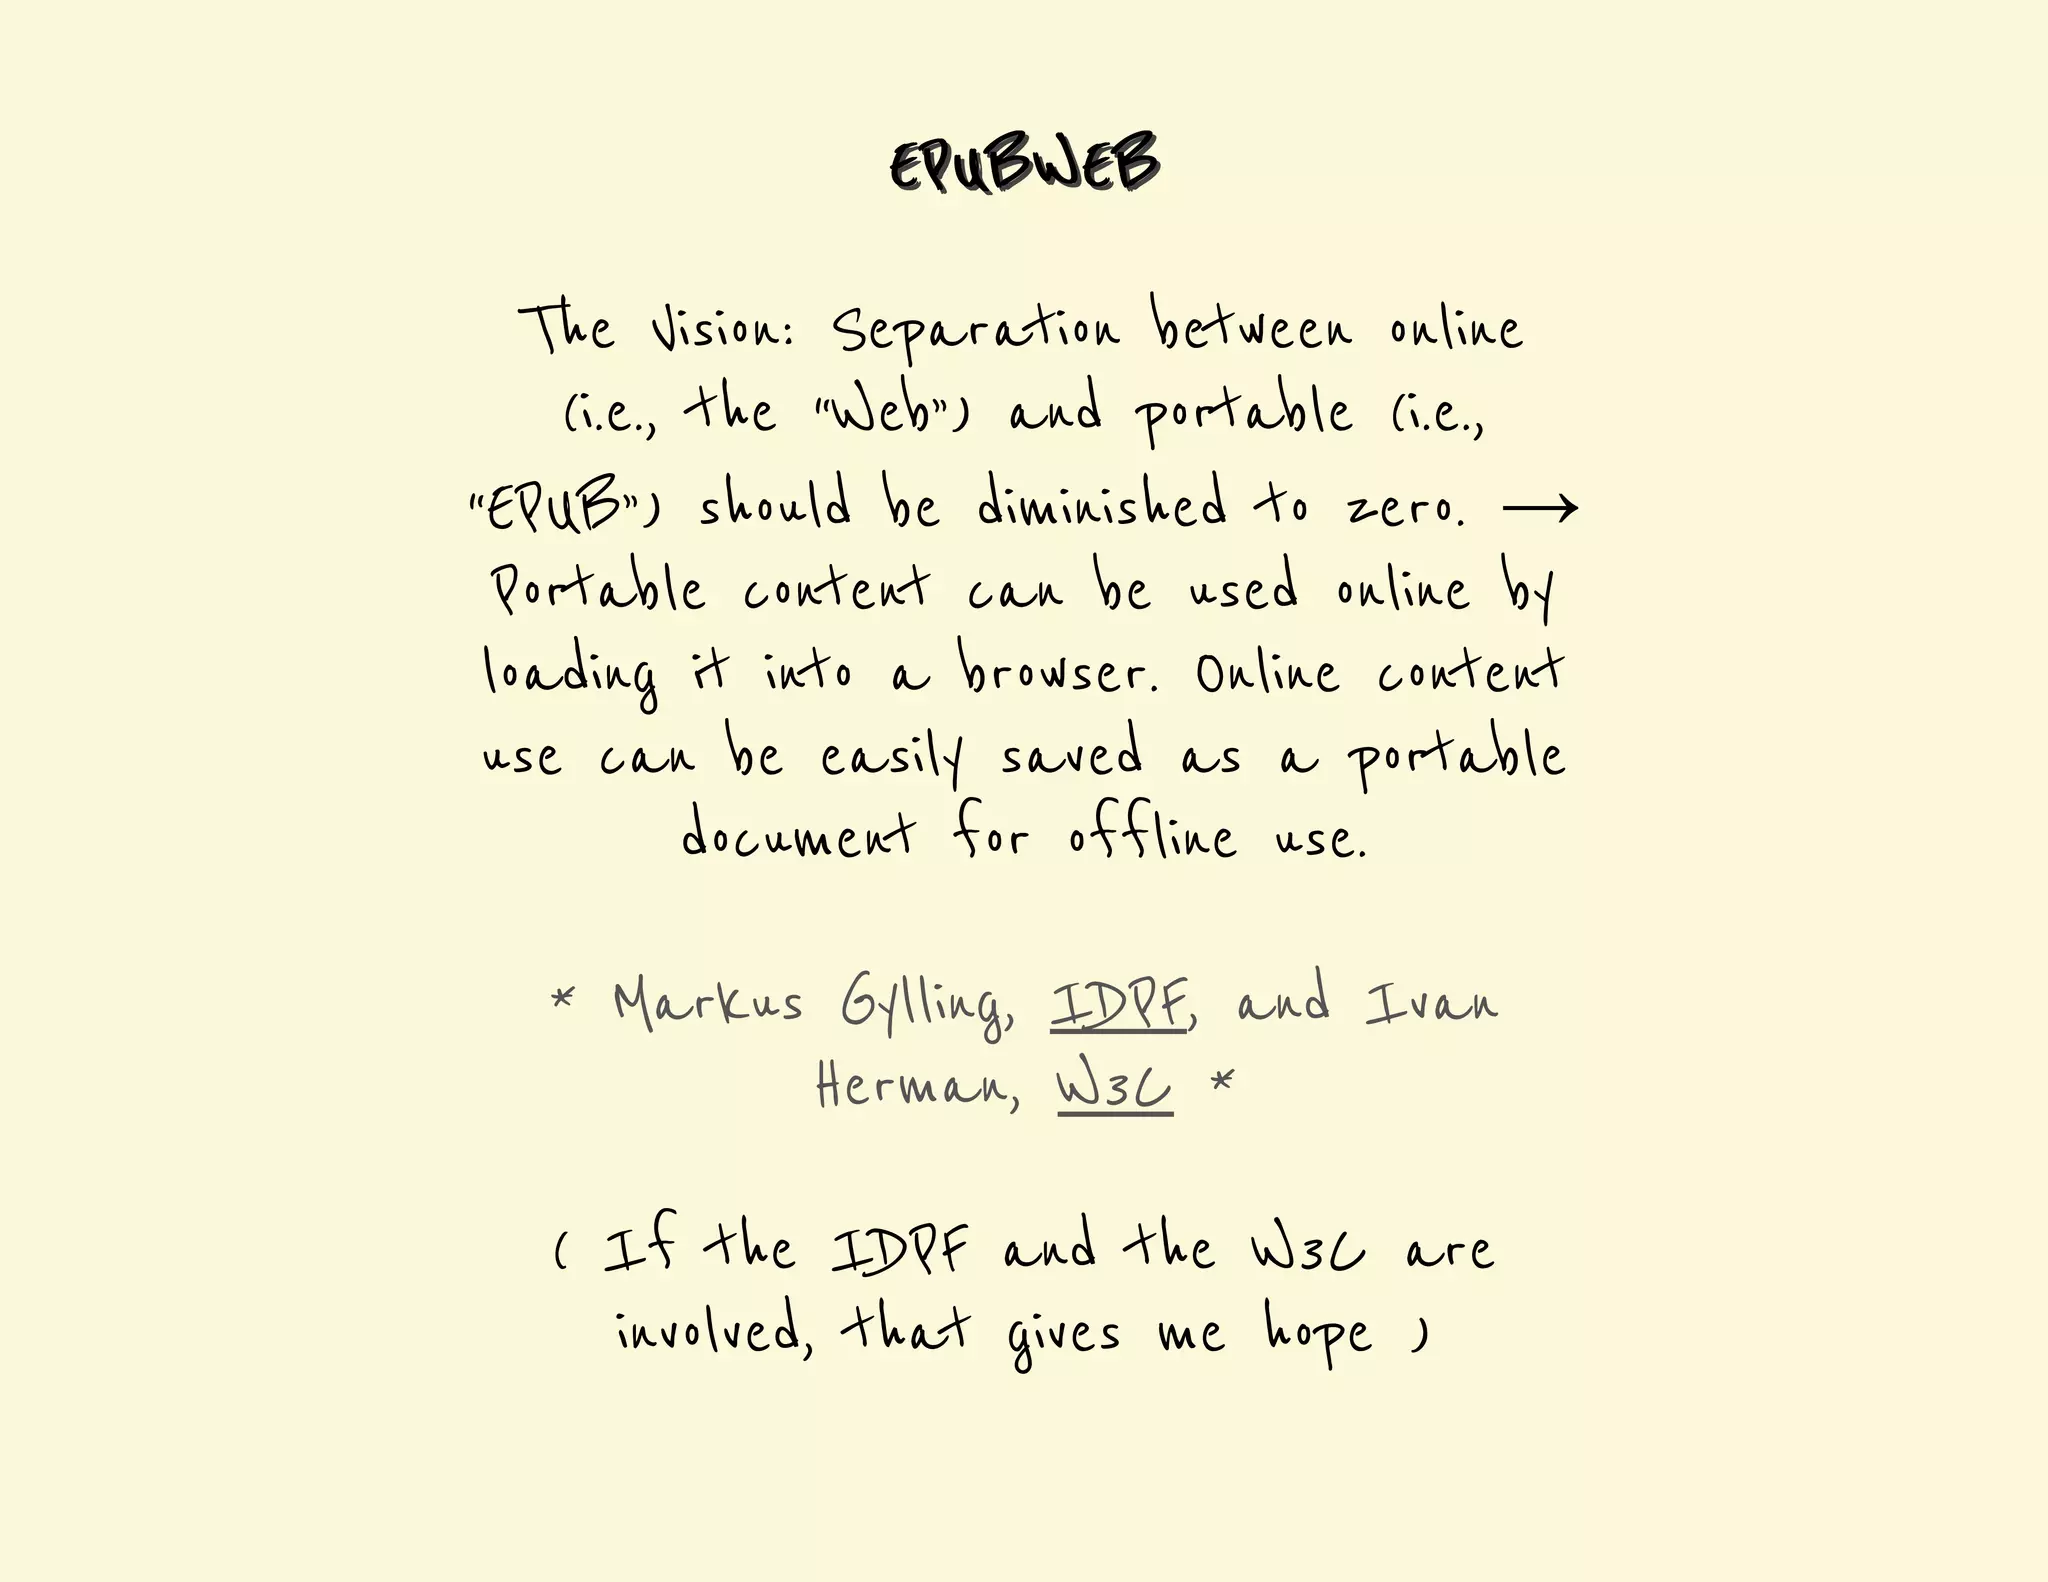 EPUBWEB
The Vision: Separation between online
(i.e., the “Web”) and portable (i.e.,
“EPUB”) should be diminished to zero. →
Portable content can be used online by
loading it into a browser. Online content
use can be easily saved as a portable
document for offline use.
* Markus Gylling, IDPF, and Ivan
Herman, W3C *
( If the IDPF and the W3C are
involved, that gives me hope )